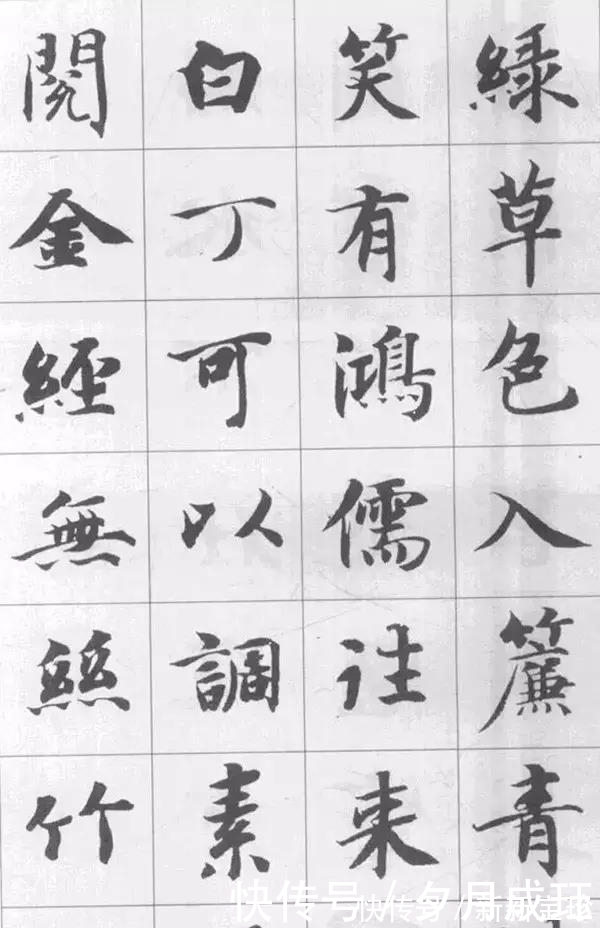 緑草色入簾青
笑有鴻儒往来
白丁可以調素
閱金經無絲竹
快传号 / 夕月成环
快传号 / 新